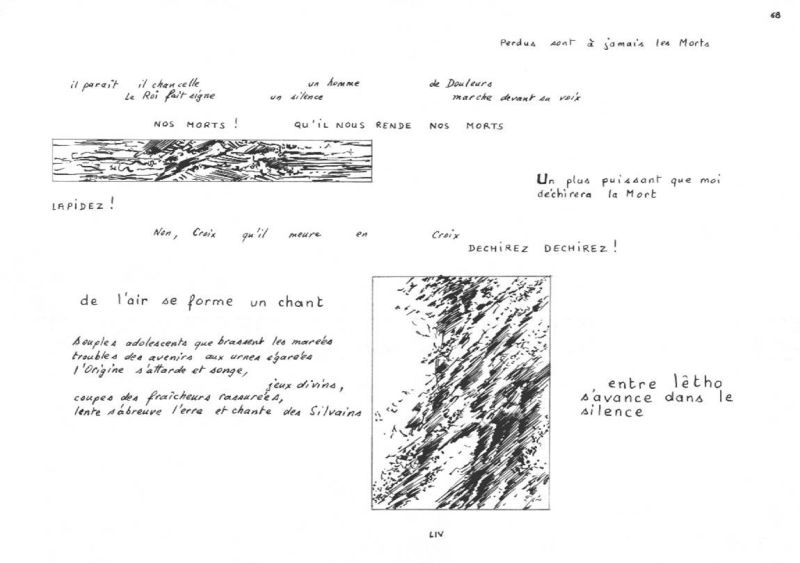 68
Perdus sont à jamais les Morts
il paraît il chancelle un homme de Douleurs
Le Roi fait signe un silence marche devant sa voix
NOS MORTS ! QU'IL NOUS RENDE NOS MORTS
Un plus puissant que moi
déchirera la Mort
LAPIDEZ !
Non, Croix qu'il meure en Croix
DECHIREZ DECHIREZ !
de l'air se forme un chant
Souples adolescents que brassent les marées
troubles des avenirs aux urnes égarées
l'Origine s'attarde et songe,
jeux divins,
coupes des fraîcheurs rassurées,
lente s'abreuve l'erre et chante des Silvains
entre lêtho
s'avance dans le
silence
LIV